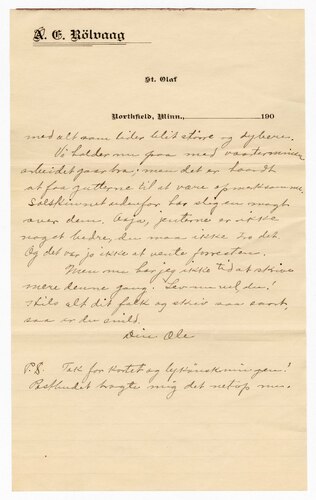 A. E. Rölvaag
St. Olaf
Northfield, Minn., 190
med alt som lider blit större og dybere.
Vi holder nu paa med vaarterminen
arbeidet gaar bra; men det er haardt
at faa gutterne til at være opmerksomme.
Solskinnet udenfor har slig en magt
over dem. Oja, jenterne er ikke
noget bedre, du maa ikke tro det
Og det var jo ikke at vente forresten.
Men nu har jeg ikke tid at skrive
mere denne gang. Lev nu vel du!
Hils alt dit folk og skriv saa snart,
saa er du snild.
Din Ole
P.S. Tak for kortet og lykönskningen!
Postbudet bragte mig det netop nu.